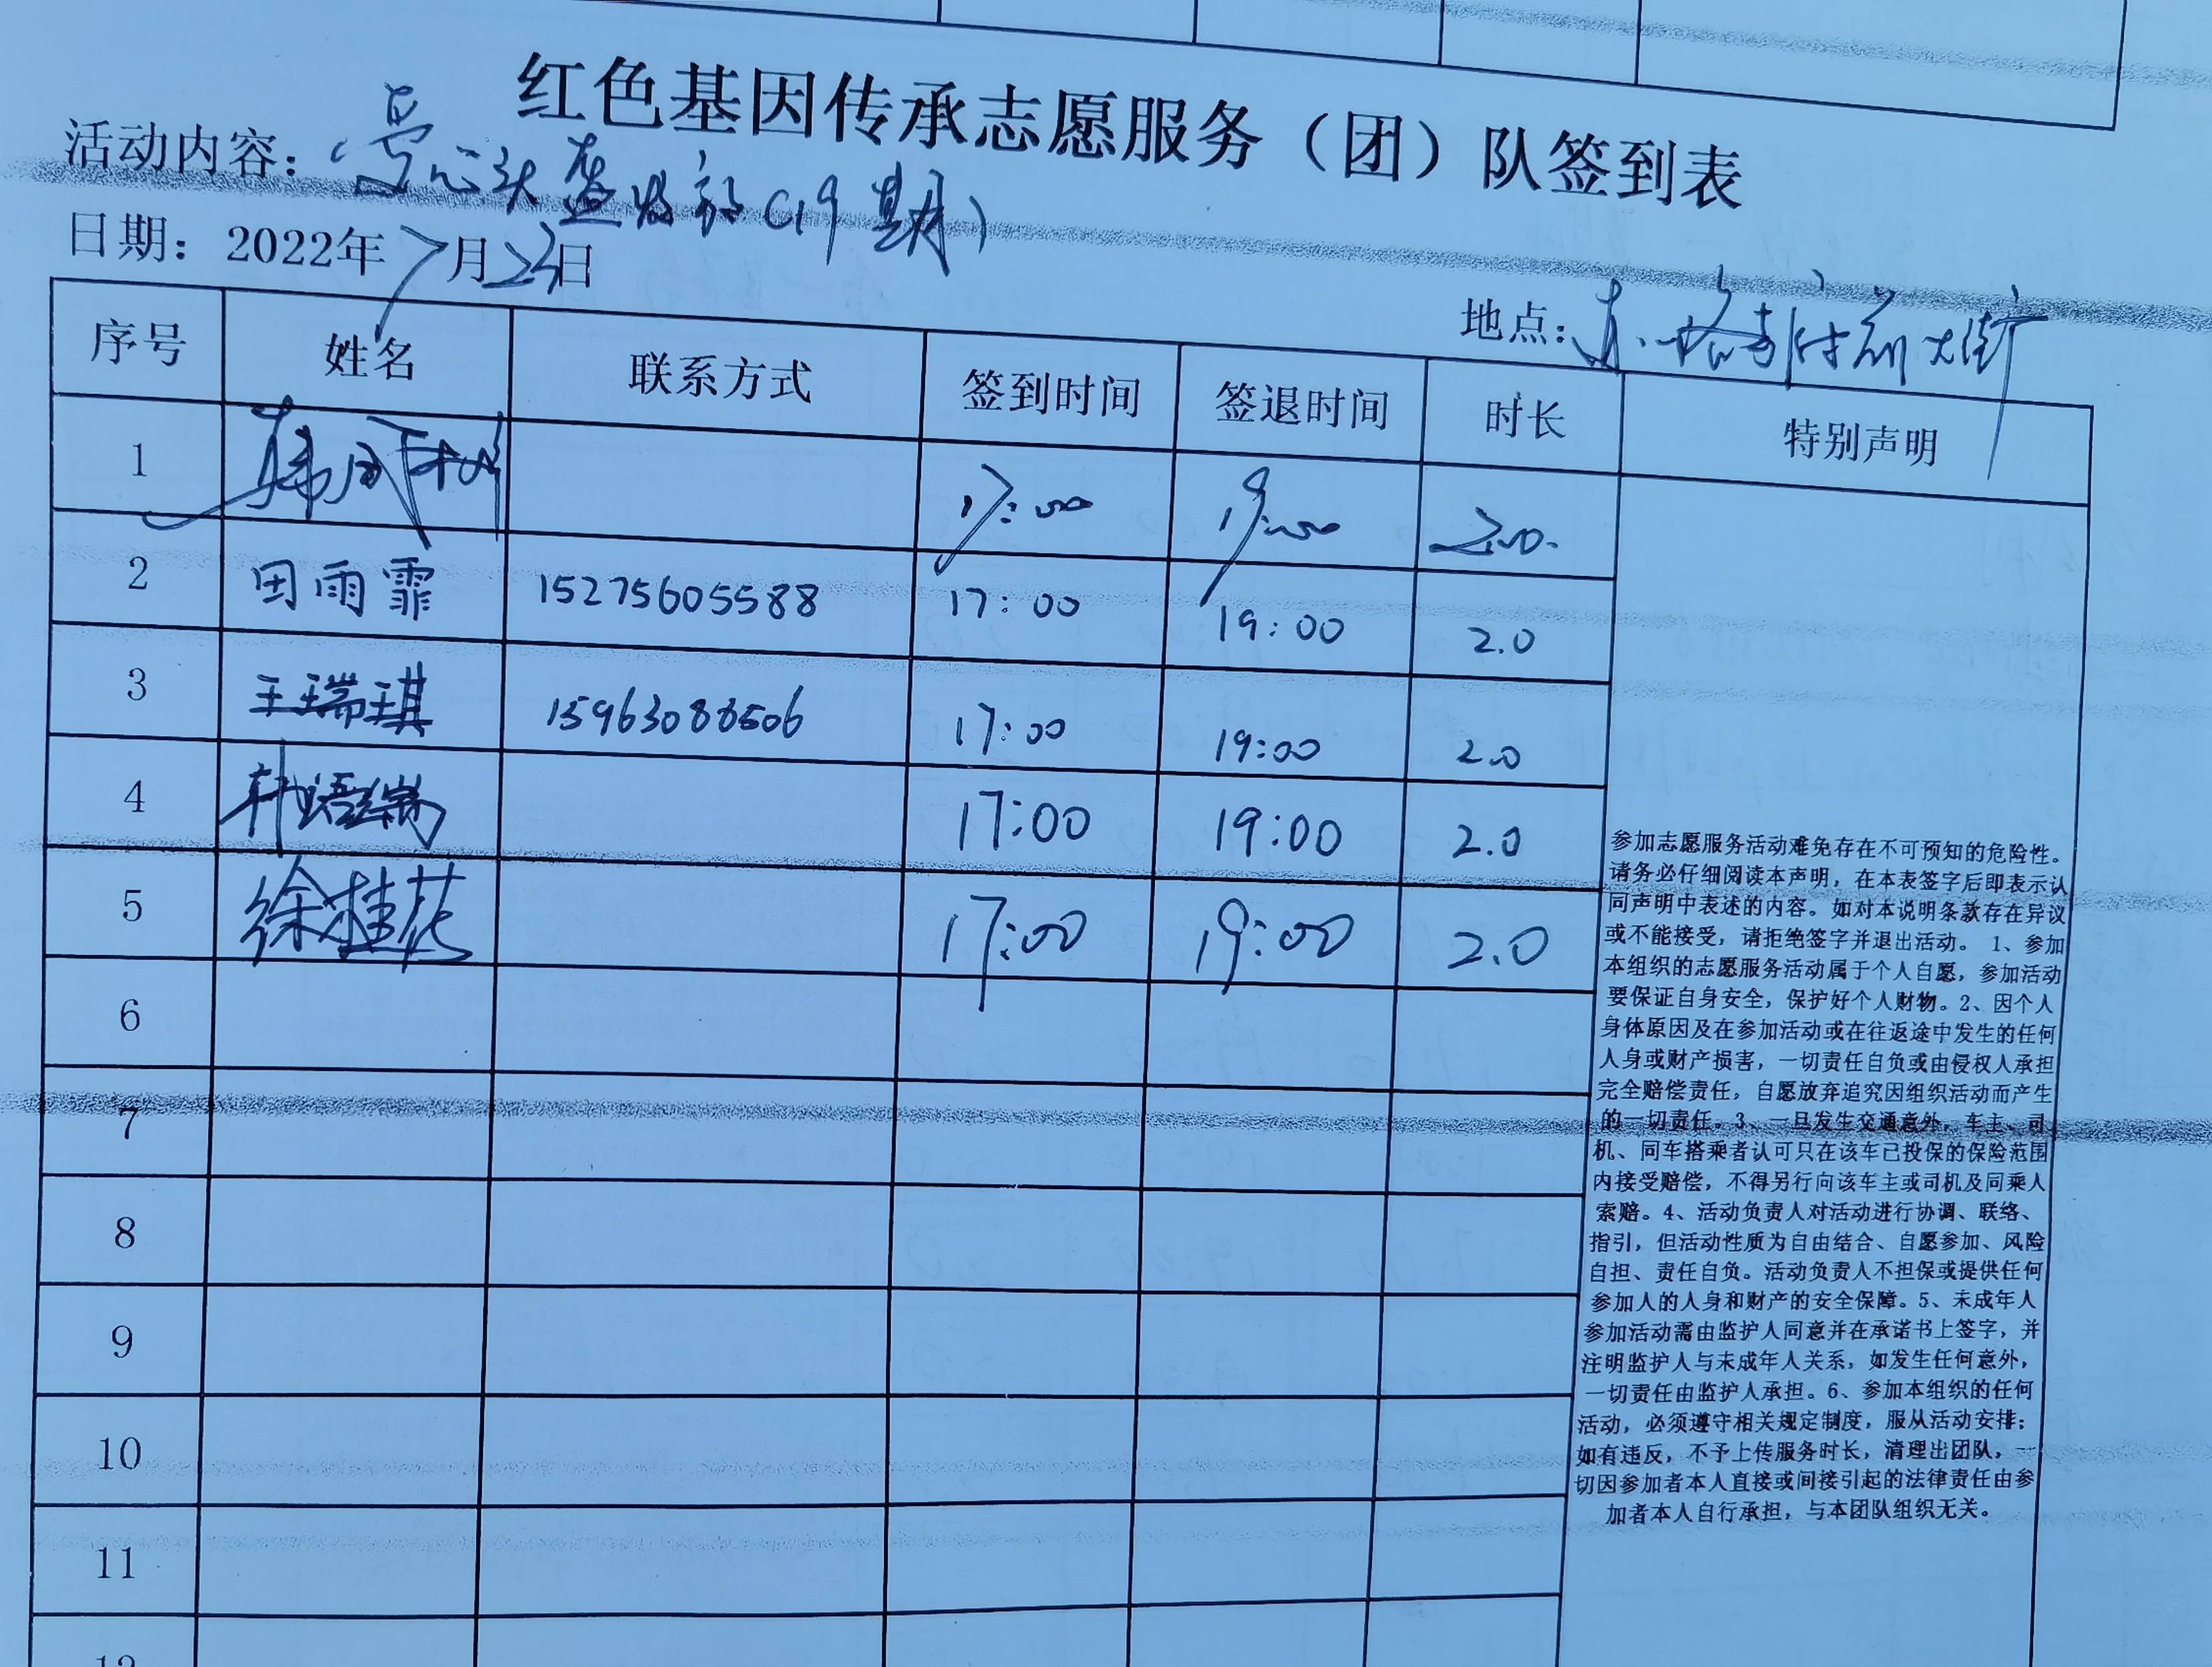 红色基因传承志愿服务（团）队签到表
活动内容：（19期）
日期：2022年7月23日
地点：大街
序号 姓名 联系方式 签到时间 签退时间 时长 特别声明
1 17:00 19:00 2.0
2 田雨霏 15275605588 17:00 19:00 2.0
3 王瑞琪 15963088506 17:00 19:00 2.0
4 17:00 19:00 2.0
5 徐桂花 17:00 19:00 2.0
6
7
8
9
10
11
12
参加志愿服务活动难免存在不可预知的危险性。
请务必仔细阅读本声明，在本表签字后即表示认
同声明中表述的内容。如对本说明条款存在异议
或不能接受，请拒绝签字并退出活动。 1、参加
本组织的志愿服务活动属于个人自愿，参加活动
要保证自身安全，保护好个人财物。2、因个人
身体原因及在参加活动或在往返途中发生的任何
人身或财产损害，一切责任自负或由侵权人承担
完全赔偿责任，自愿放弃追究因组织活动而产生
的一切责任。3、一旦发生交通意外，车主、司
机、同车搭乘者认可只在该车已投保的保险范围
内接受赔偿，不得另行向该车主或司机及同乘人
索赔。4、活动负责人对活动进行协调、联络、
指引，但活动性质为自由结合、自愿参加、风险
自担、责任自负。活动负责人不担保或提供任何
参加人的人身和财产的安全保障。5、未成年人
参加活动需由监护人同意并在承诺书上签字，并
注明监护人与未成年人关系，如发生任何意外，
一切责任由监护人承担。6、参加本组织的任何
活动，必须遵守相关规定制度，服从活动安排；
如有违反，不予上传服务时长，清理出团队，一
切因参加者本人直接或间接引起的法律责任由参
加者本人自行承担，与本团队组织无关。